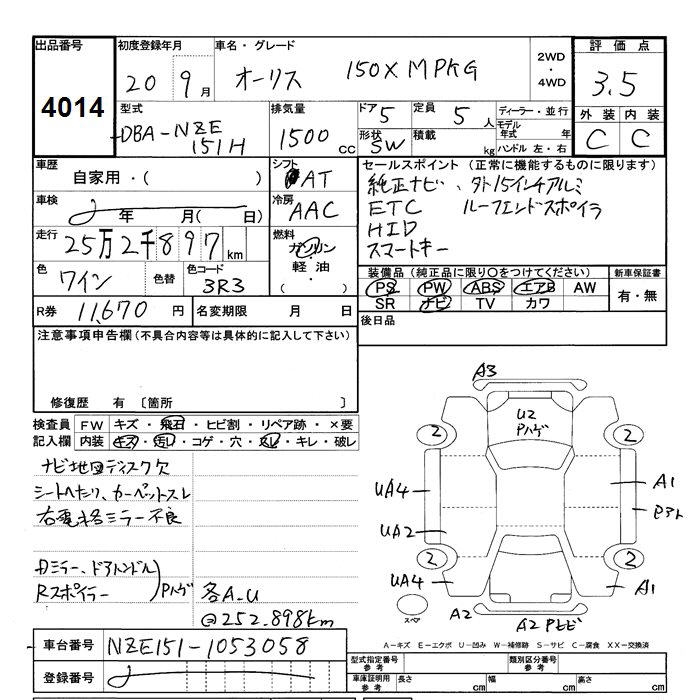 出品番号 初度登録年月 車名・グレード 2WD・4WD 評価点
4014 20 9月 オーリス 150X M PKG 3.5
型式 排気量 ドア 5 定員 5人 ディーラー・並行 外装 内装
DBA-NZE151H 1500cc 形状 SW 積載 kg モデル年式 年 ハンドル 左・右 C C
車歴 シフト セールスポイント (正常に機能するものに限ります)
自家用・( ) AT 純正ナビ、外15インチアルミ
車検 年 月( 日) 冷房 AAC ETC ルーフエンドスポイラ
走行 25万2千897km 燃料 ガソリン・軽油・( ) HID
スマートキー
色 ワイン 色替 色コード 3R3 装備品 (純正品に限り○をつけてください) 新車保証書
PS PW ABS エアB AW 有・無
R券 11,670円 名変期限 月 日 SR ナビ TV カワ
注意事項申告欄(不具合内容等は具体的に記入して下さい) 後日品
修復歴 有 〔箇所 〕
検査員 FW キズ・飛石・ヒビ割・リペア跡・×要
記入欄 内装 キズ・汚レ・コゲ・穴・スレ・キレ・破レ
ナビ地図ディスク欠
シートヘたり、カーペットスレ
右電格ミラー不良
Dミラー、ドアハンドル
Rスポイラー
Pハゲ
各A.U
@252.898km
車台番号 NZE151-1053058
登録番号
A3
U2
Pハゲ
2 2
UA4 A1
UA2
2 2
UA4 A1
スペア
A2
A2
A-キズ E-エクボ U-凹み W-補修跡 S-サビ C-腐食 XX-交換済
型式指定番号 参考 類別区分番号 参考
車庫証明用 参考 長さ cm 幅 cm 高さ cm